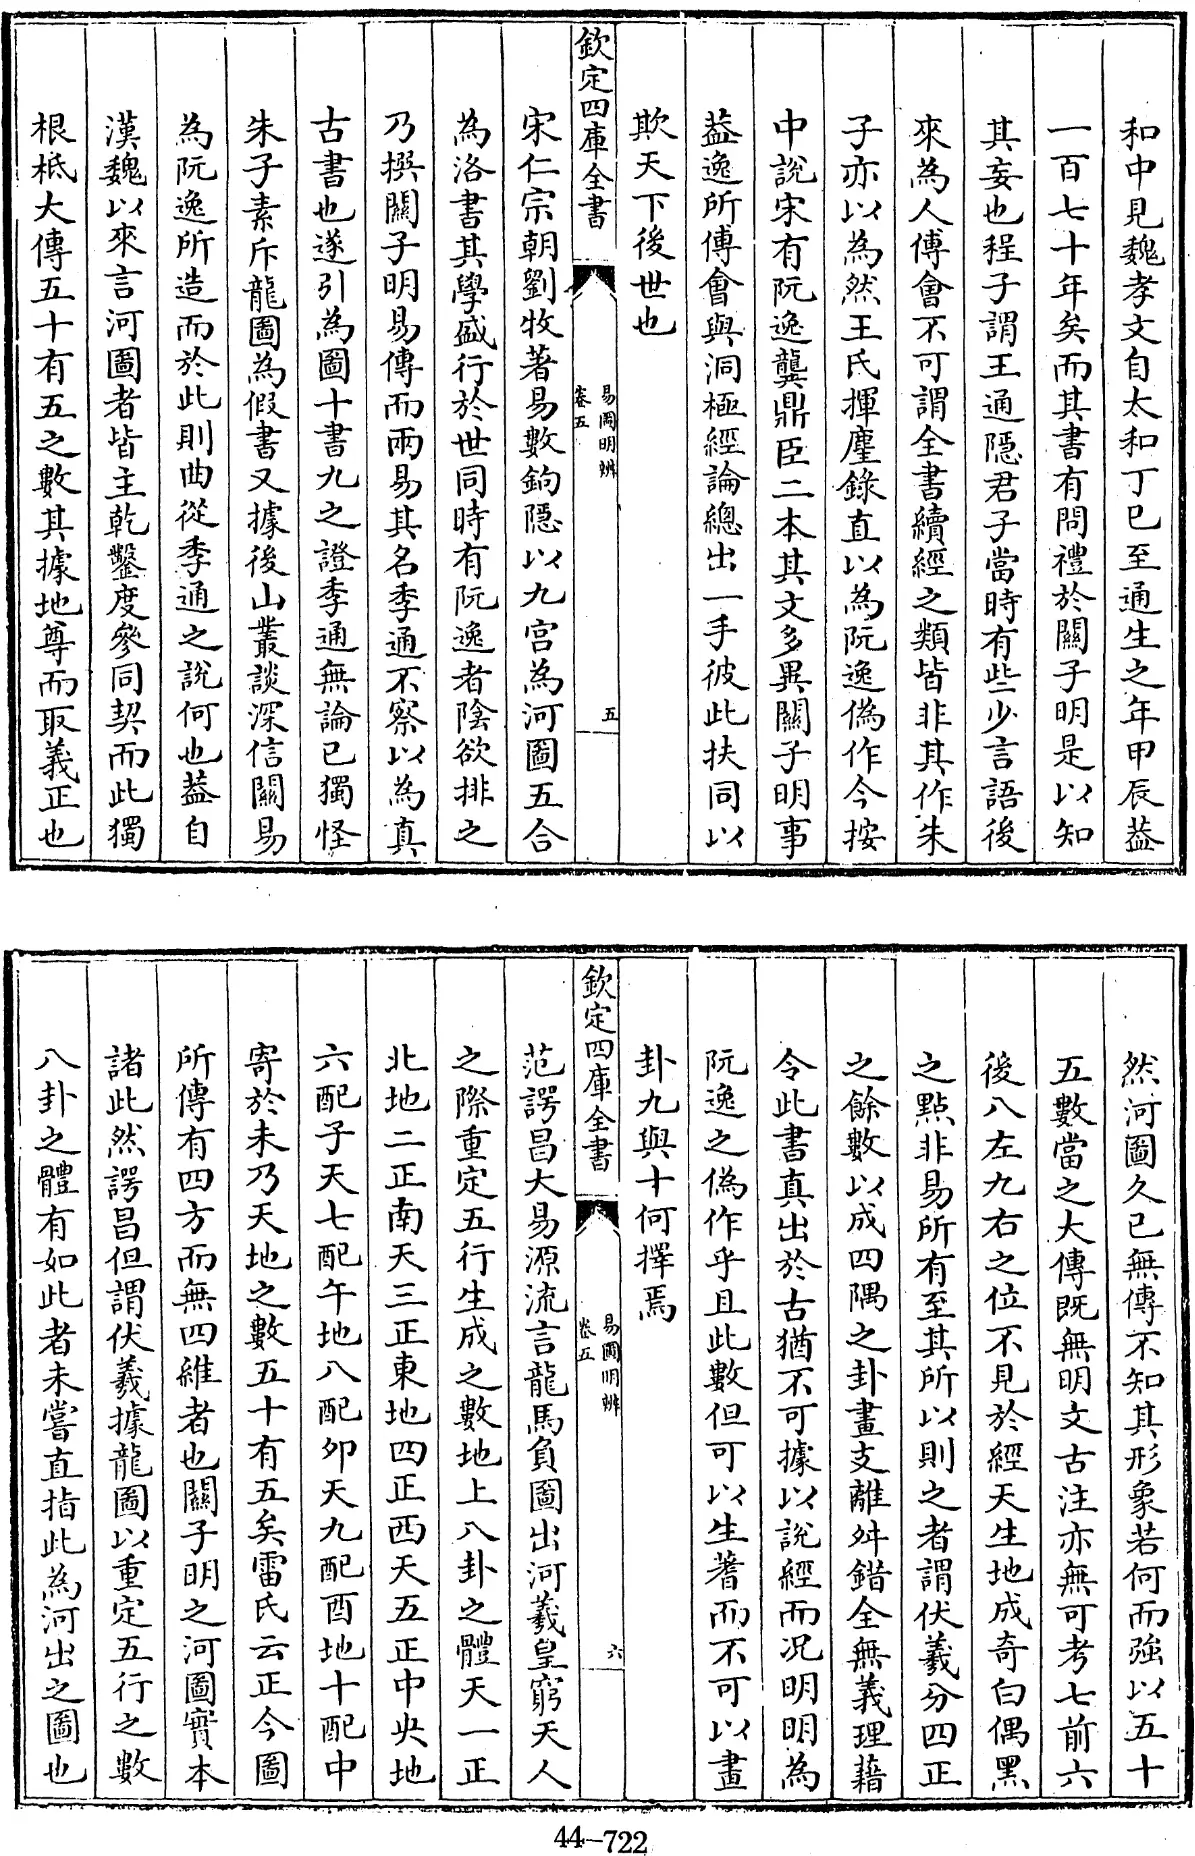 和中見魏孝文自太和丁巳至通生之年甲辰葢
一百七十年矣而其書有問禮於關子明是以知
其妄也程子謂王通隱君子當時有些少言語後
來為人傅會不可謂全書續經之類皆非其作朱
子亦以為然王氏揮麈錄直以為阮逸偽作今按
中說宋有阮逸龔鼎臣二本其文多異關子明事
葢逸所傅會與洞極經論總出一手彼此扶同以
欺天下後世也
欽定四庫全書
易圖明辨
卷五
五
宋仁宗朝劉牧著易數鉤隱以九宫為河圖五合
為洛書其學盛行於世同時有阮逸者陰欲排之
乃撰關子明易傳而兩易其名季通不察以為真
古書也遂引為圖十書九之證季通無論已獨怪
朱子素斥龍圖為假書又據後山叢談深信關易
為阮逸所造而於此則曲從季通之說何也葢自
漢魏以來言河圖者皆主乾鑿度參同契而此獨
根柢大傳五十有五之數其據地尊而取義正也
然河圖久已無傳不知其形象若何而強以五十
五數當之大傳既無明文古注亦無可考七前六
後八左九右之位不見於經天生地成奇白偶黑
之點非易所有至其所以則之者謂伏羲分四正
之餘數以成四隅之卦畫支離舛錯全無義理藉
令此書真出於古猶不可據以說經而況明明為
阮逸之偽作乎且此數但可以生蓍而不可以畫
卦九與十何擇焉
欽定四庫全書
易圖明辨
卷五
六
范諤昌大易源流言龍馬負圖出河羲皇窮天人
之際重定五行生成之數地上八卦之體天一正
北地二正南天三正東地四正西天五正中央地
六配子天七配午地八配卯天九配酉地十配中
寄於未乃天地之數五十有五矣雷氏云正今圖
所傳有四方而無四維者也關子明之河圖實本
諸此然諤昌但謂伏羲據龍圖以重定五行之數
八卦之體有如此者未嘗直指此為河出之圖也
44-722